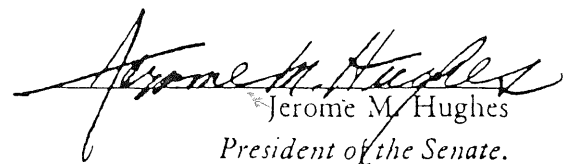 Jerome M. Hughes
Jerome M. Hughes
President of the Senate.